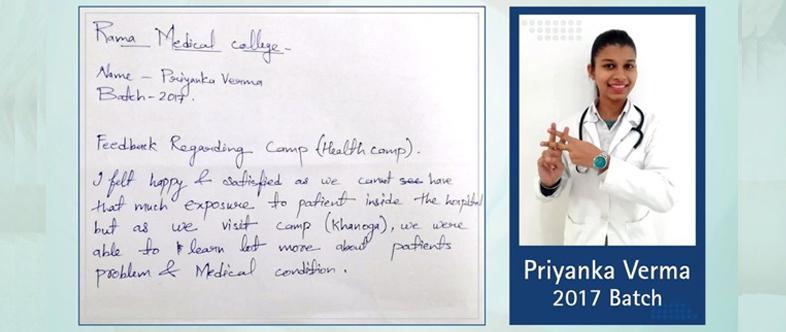 Rama Medical college -
Name - Priyanka Verma
Batch - 2017.
Feedback Regarding Camp (Health camp).
I felt happy & satisfied as we cannot see have
that much exposure to patient inside the hospital
but as we visit camp (Khanoga), we were
able to learn lot more about patients
problem & Medical condition.
Priyanka Verma
2017 Batch